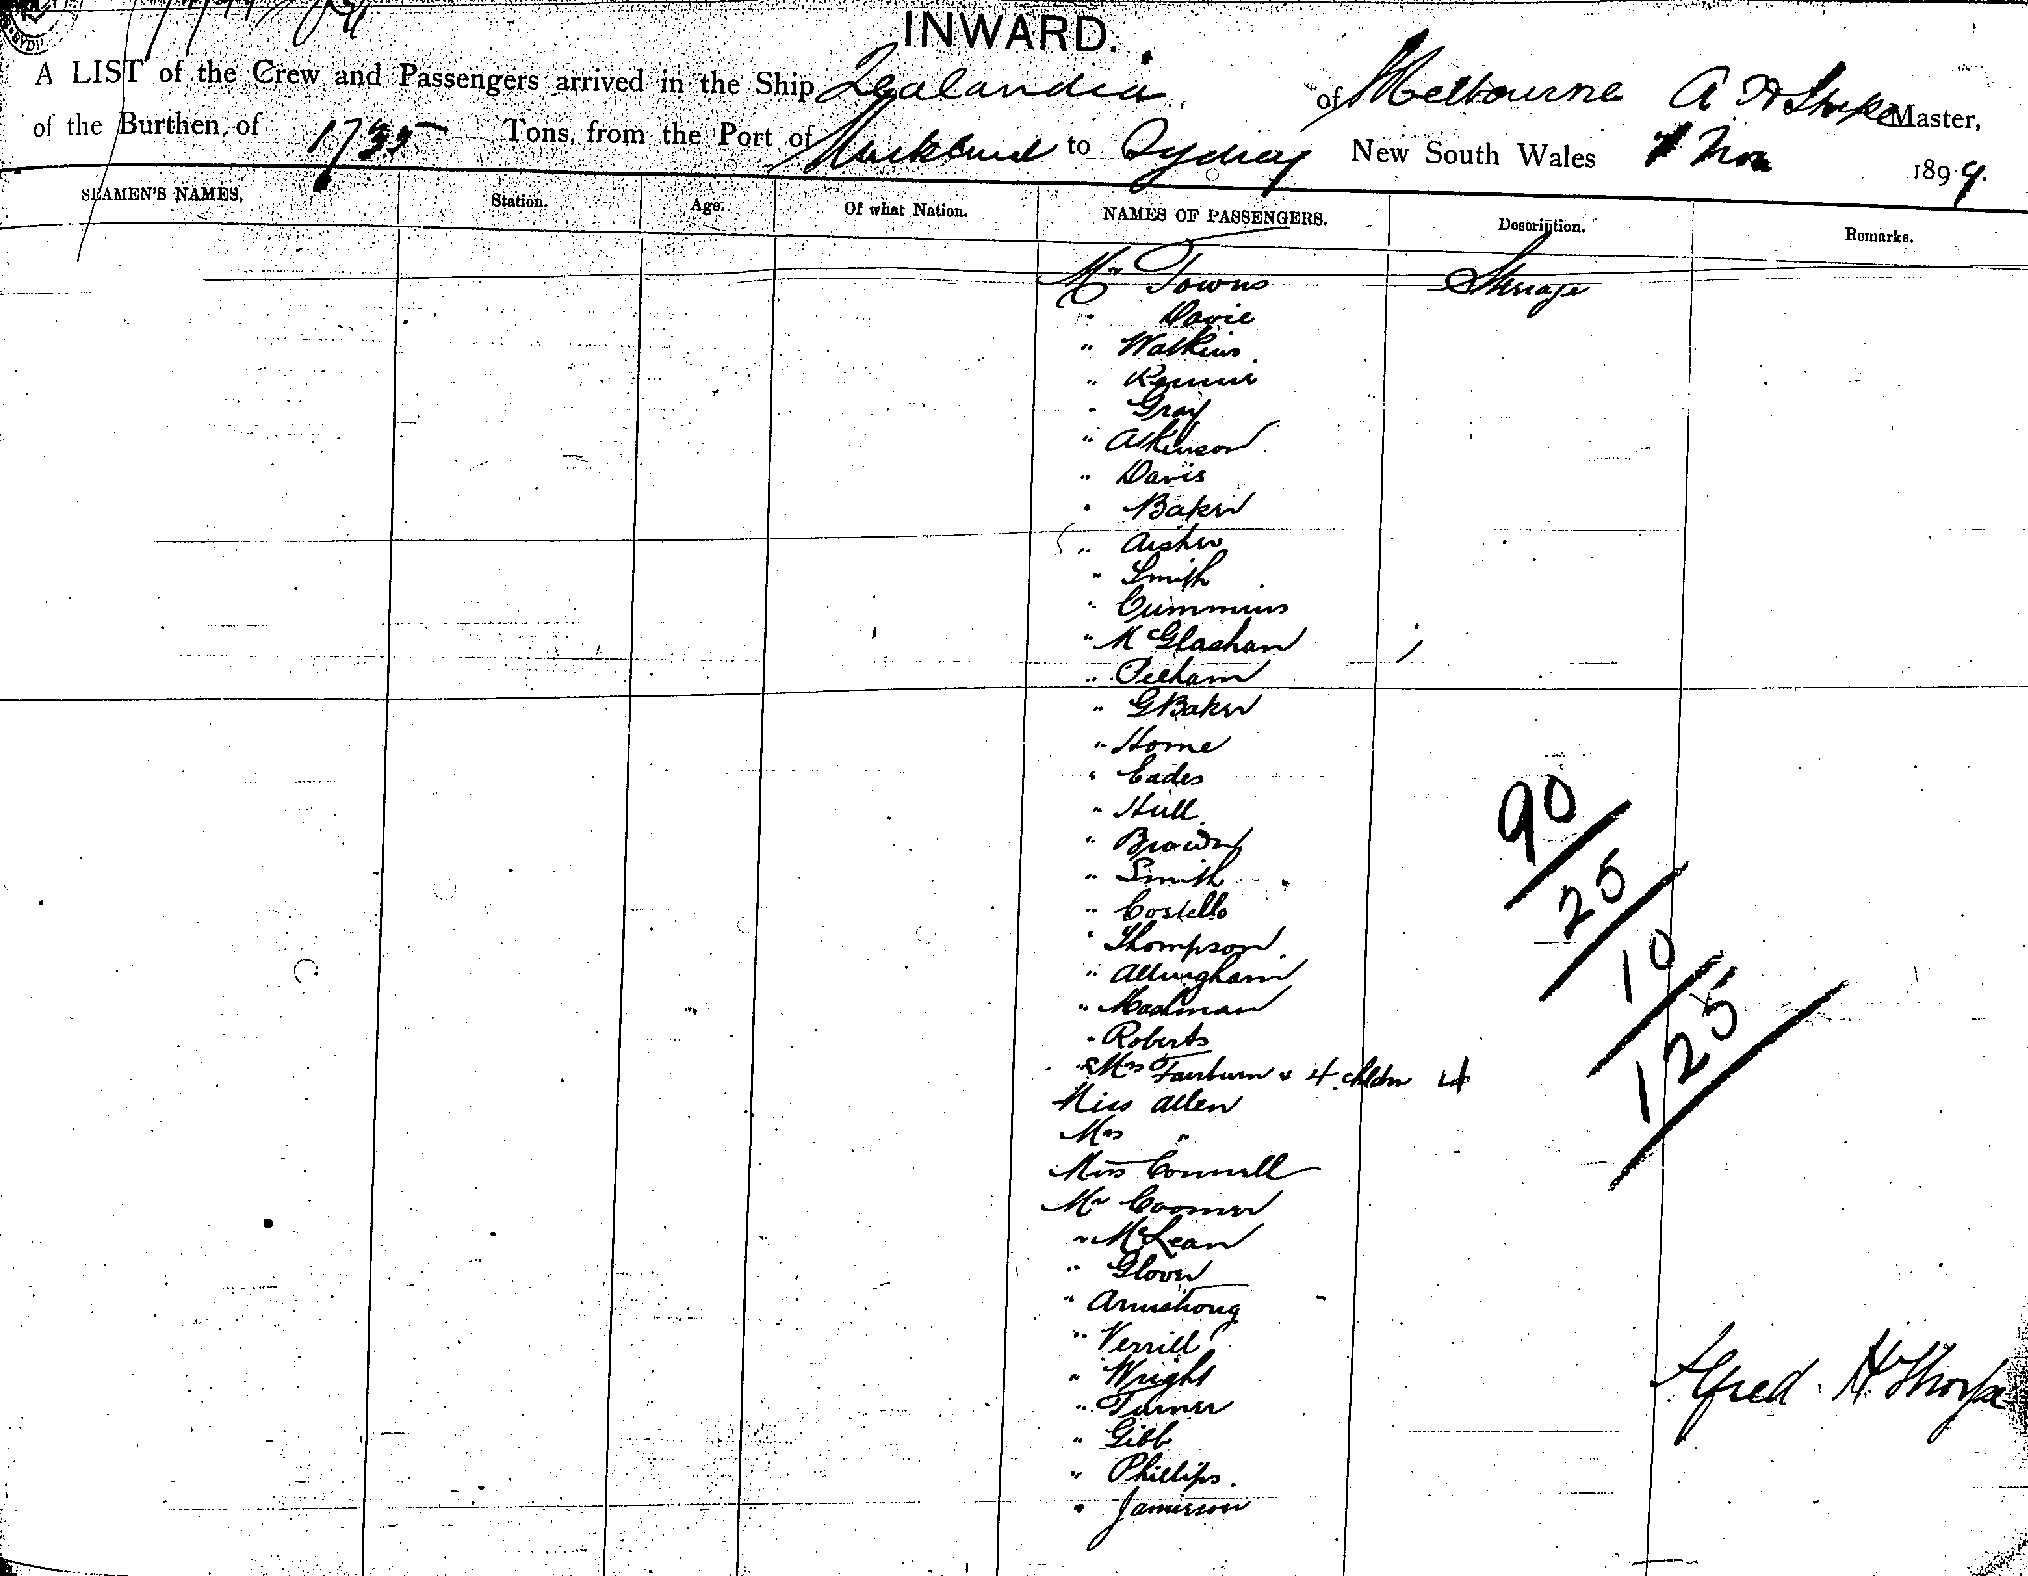 INWARD.
A LIST of the Crew and Passengers arrived in the Ship Zealandia of Melbourne A H Thorpe Master,
of the Burthen, of Tons, from the Port of Auckland to Sydney New South Wales Nov 1899.
SEAMEN'S NAMES, Station. Age. Of what Nation. NAMES OF PASSENGERS. Description. Remarks.
Mr Towns Steerage
" Davie
" Watkins
" Rennie
" Gray
" Atkinson
" Davis
" Baker
" Aisher
" Smith
" Cummins
" McGlashan
" Pelham
" G Baker
" Horne
" Eades
" Hull
" Brown
" Smith
" Costello
" Thompson
" Allingham
" Maslman
" Roberts
" Mrs Fairburn & 4 childn 4
Miss Allen
Mrs "
Miss Connell
Mr Coomer
" McLean
" Glover
" Armstrong
" Verrill
" Wright
" Turner
" Gibb
" Phillips
" Jamieson
90
25
10
125
Alfred H Thorpe